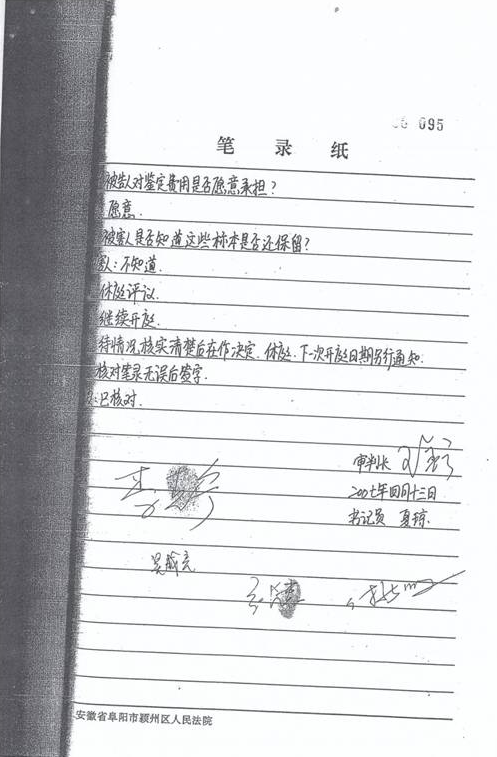 095
笔录纸
被告人对鉴定费用是否愿意承担？
愿意．
被害人是否知道这些标本是否还保留？
人：不知道．
休庭评议．
继续开庭．
待情况核实清楚后在作决定．休庭．下一次开庭日期另行通知．
核对笔录无误后签字．
已核对．
审判长
二〇〇七年四月十三日
书记员 夏琼．
安徽省阜阳市颍州区人民法院